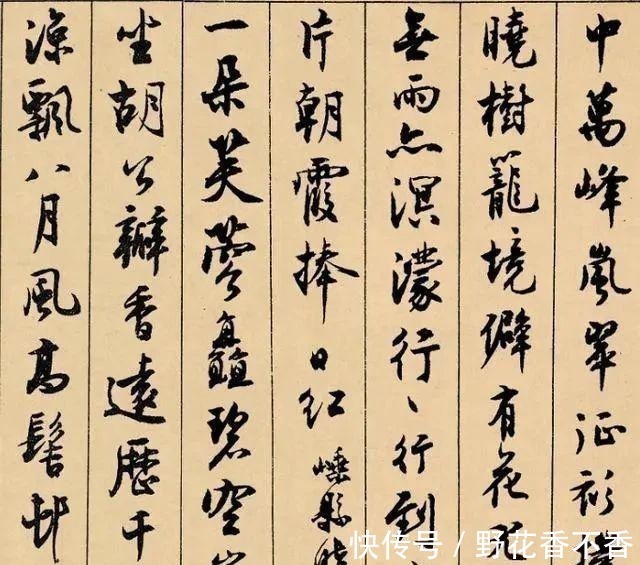 中萬峰嵐翠
曉樹籠境僻有花
無雨亦溟濛行行行到
片朝霞捧日紅 嵊縣
一朵芙蓉矗碧空
坐胡公瓣香遠歷千
涼飄八月風高髻邨
快传号 / 野花香不香